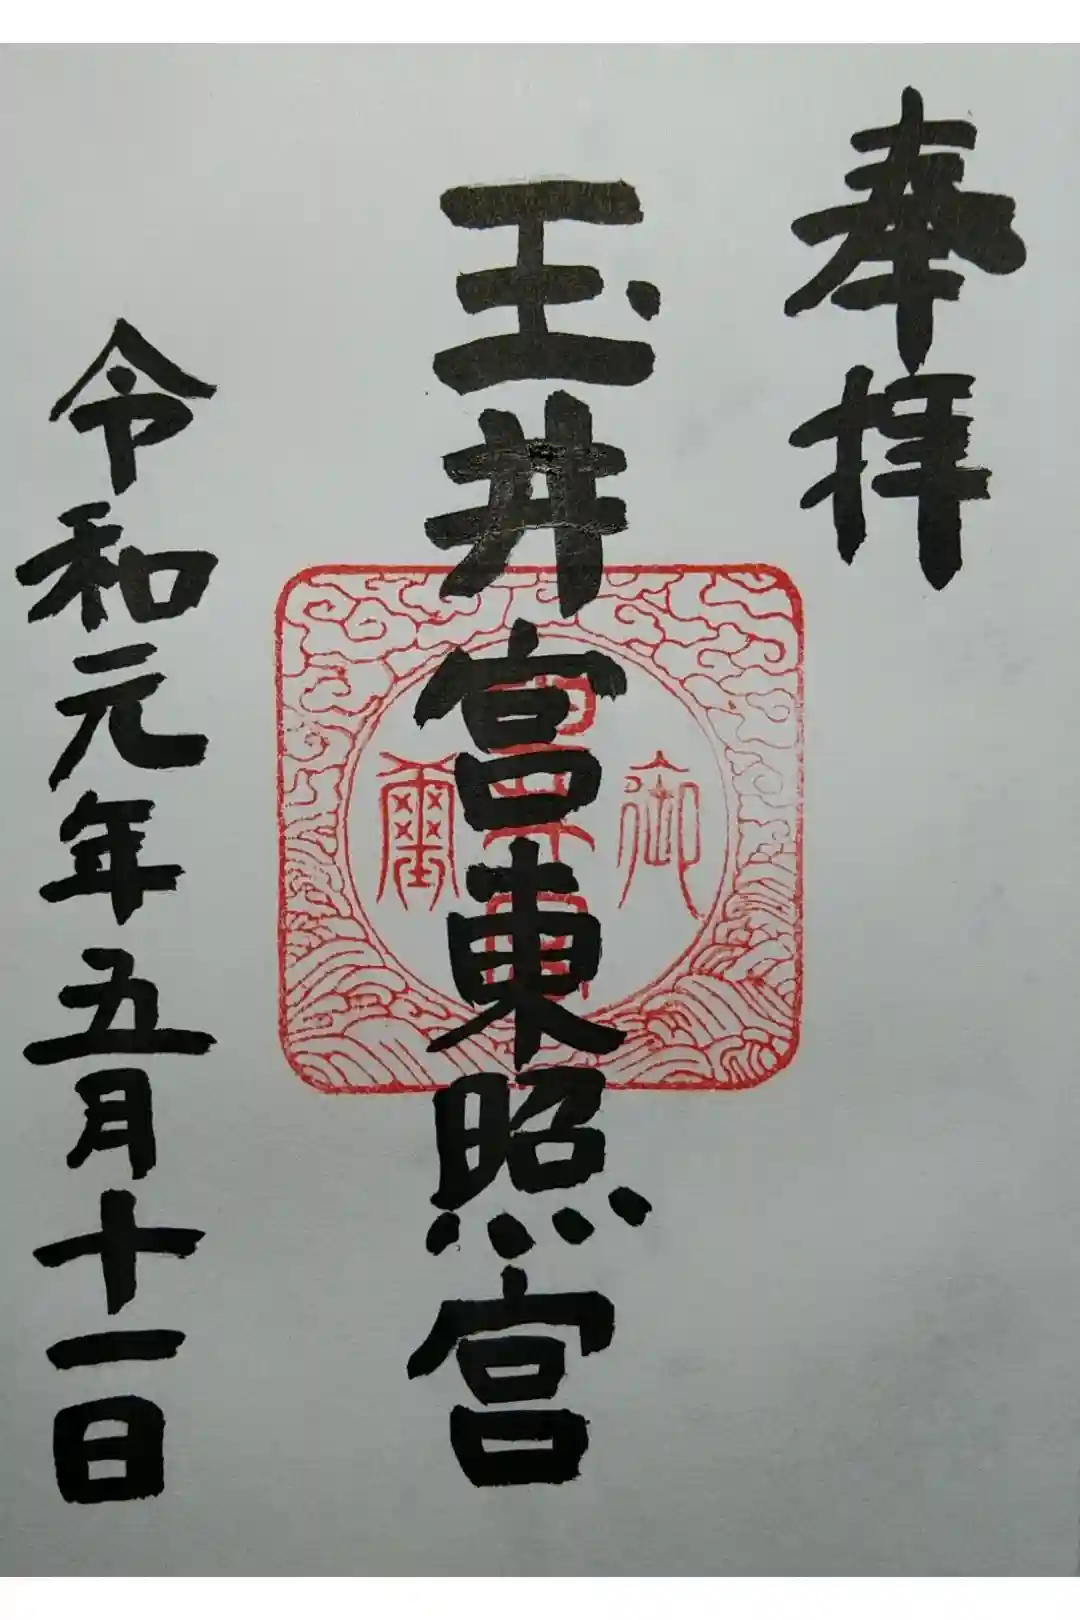 奉拝
玉井宮東照宮
令和元年五月十一日